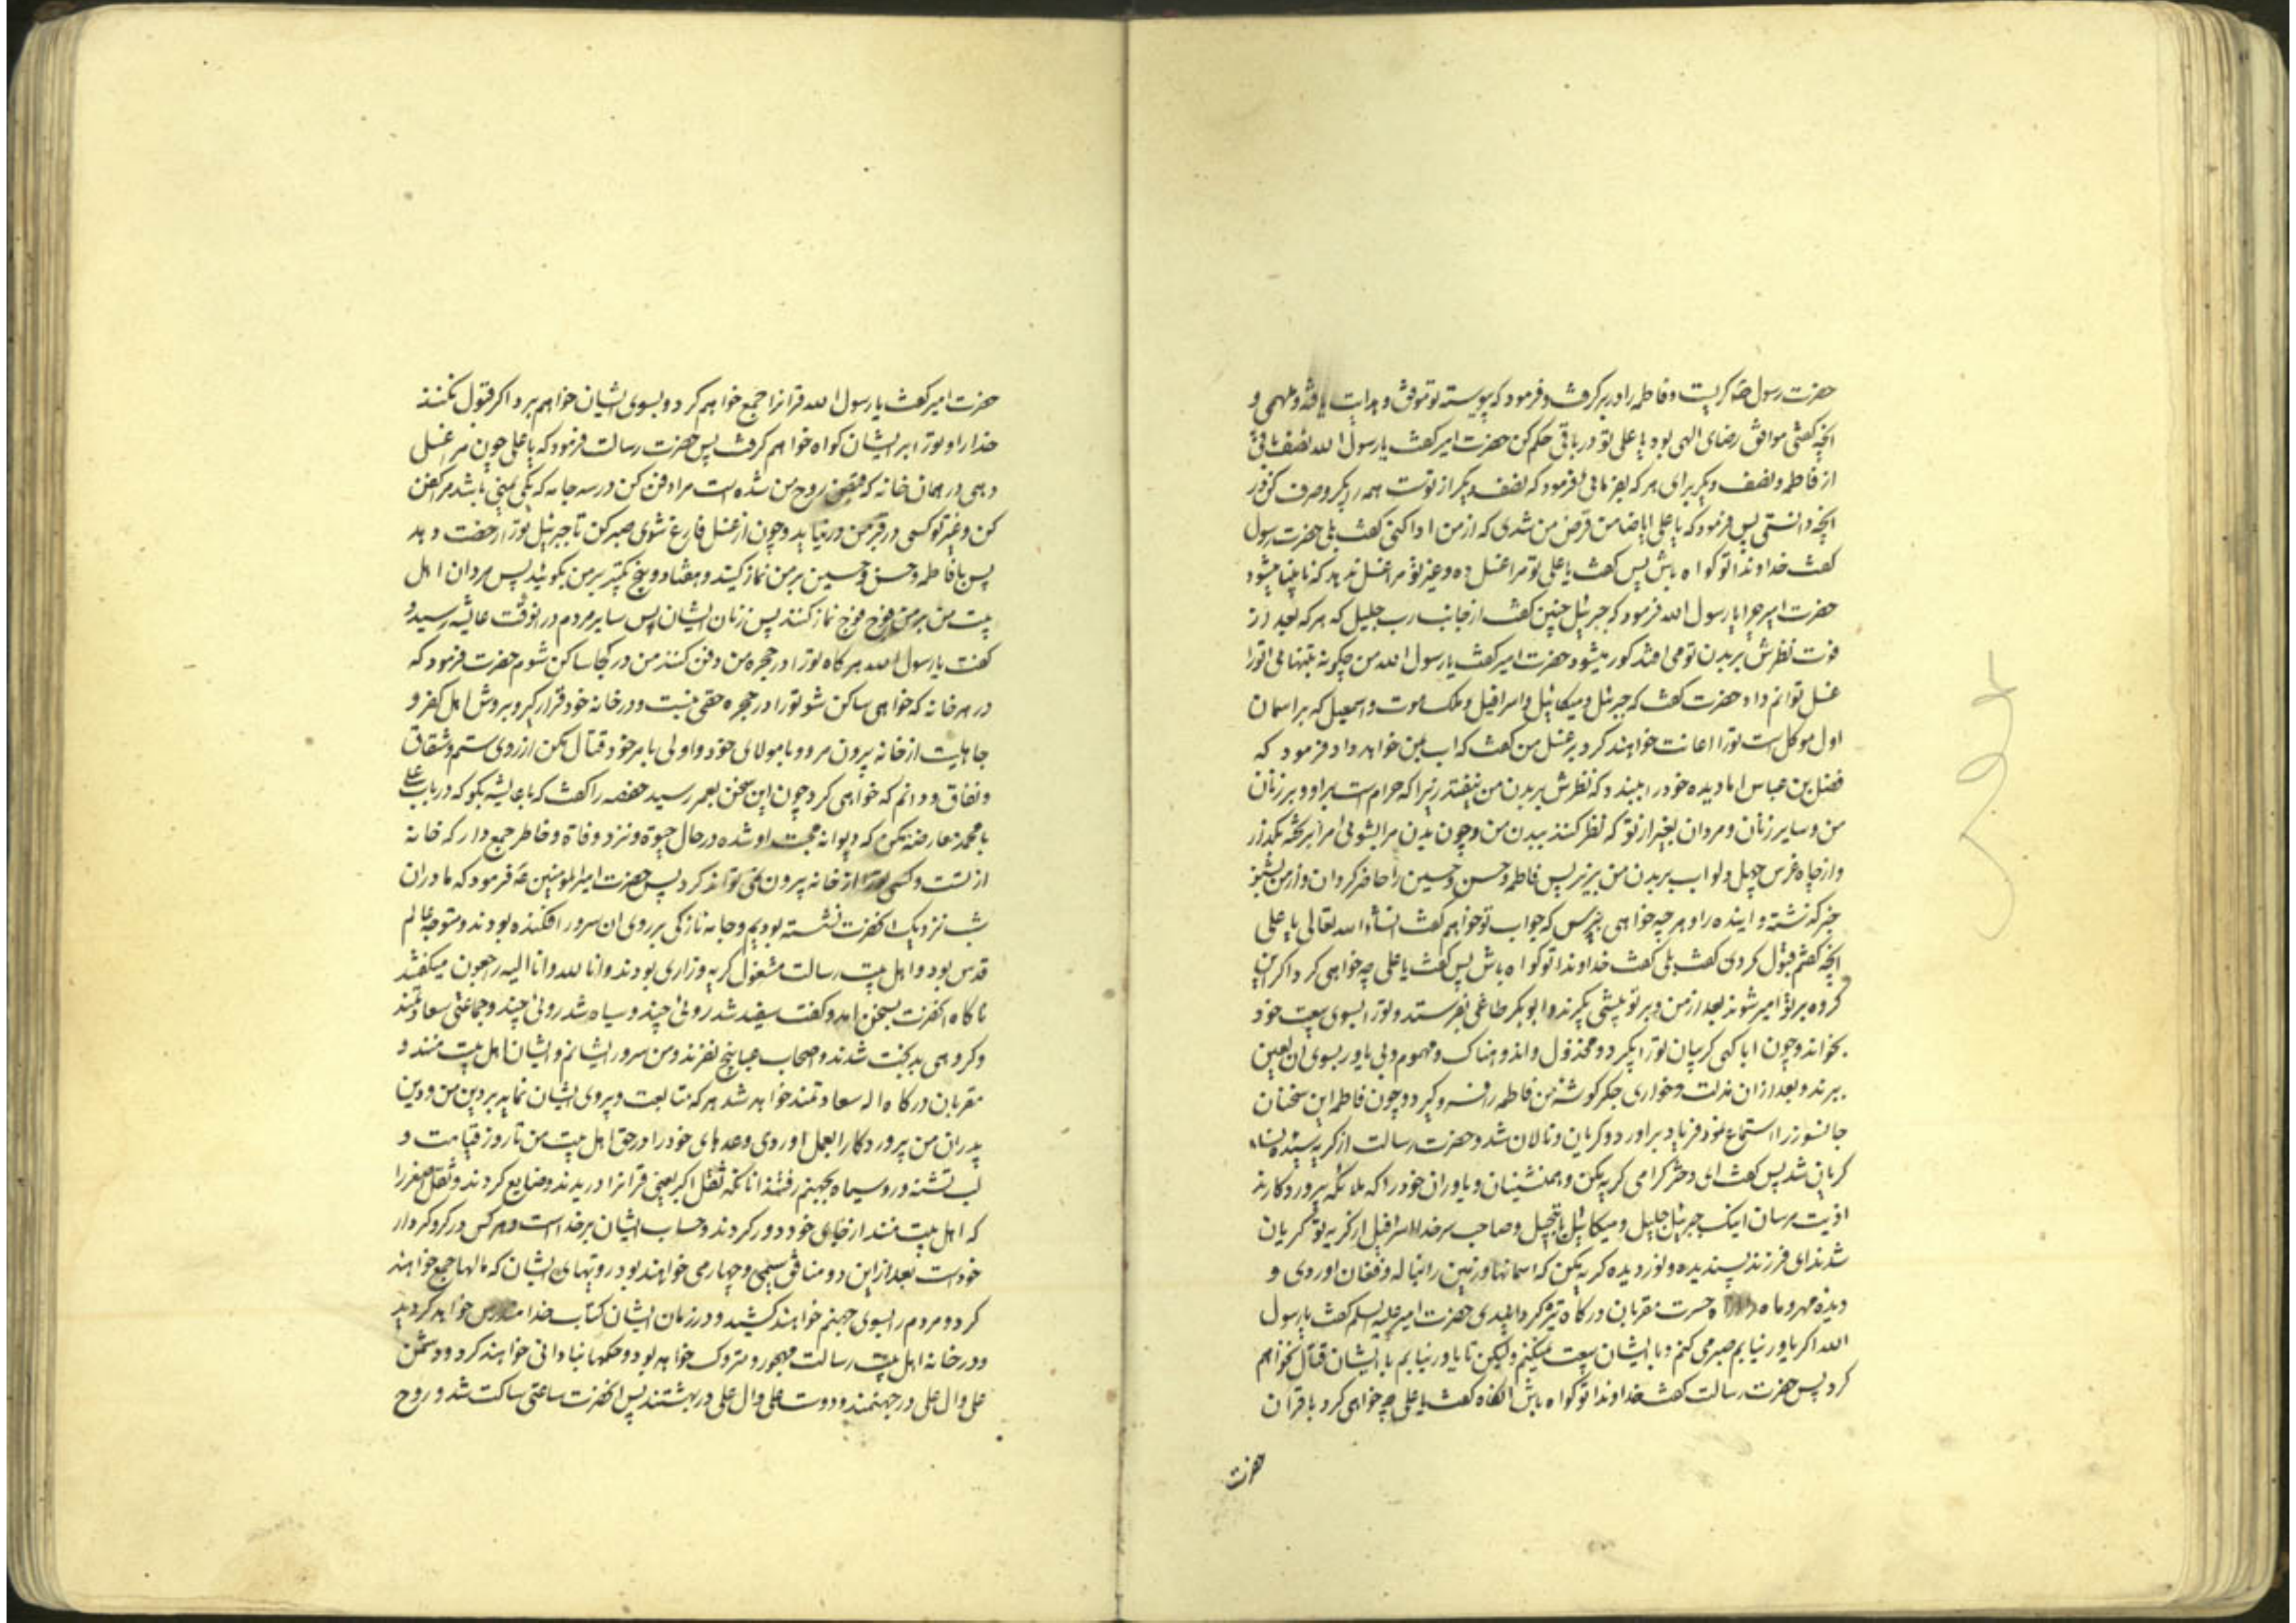 حضرت رسول ص کریست و فاطمه را در بر کرفت و فرمود که پیوسته تو موفق و هدایت یافته و ملهمی و
انچه کفتی موافق رضای الهی بود یا علی تو در باقی حکم کن حضرت امیر کفت یا رسول الله نصف باقی
از فاطمه و نصف دیکر برای هر که بفرمائی فرمود که نصف دیکر از توست همه را بکیر و صرف کن در
انچه دانستی پس فرمود که یا علی ایا ضامن قرض من شدی که از من ادا کنی کفت بلی حضرت رسول
کفت خداوندا تو کواه باش پس کفت یا علی تو مرا غسل ده و غیر تو مرا غسل ندهد که نابینا میشود
حضرت امیر چرا یا رسول الله فرمود که جبرئیل چنین کفت از جانب رب جلیل که هر که بعد از
فوت نظرش بر بدن تو می افتد کور میشود حضرت امیر کفت یا رسول الله من چکونه بتنهائی تو را
غسل توانم داد حضرت کفت که جبرئیل و میکائیل و اسرافیل و ملک موت و اسمعیل که بر اسمان
اول موکل است تو را اعانت خواهند کرد بر غسل من کفت که اب بمن خواهد داد فرمود که
فضل بن عباس اما دیده خود را ببندد که نظرش بر بدن من نیفتد زیرا که حرام است بر او و بر زنان
من و سایر زنان و مردان بغیر از تو که نظر کنند ببدن من و چون بدن مرا بشوئی مرا بر تخته بکذار
و از چاه غرس چهل دلو اب بر بدن من بریز پس فاطمه و حسن و حسین را حاضر کردان و از من بشنو
خبر کذشته و اینده را و هر چه خواهی بپرس که جواب تو خواهم کفت انشاء الله تعالی یا علی
انچه کفتم قبول کردی کفت بلی کفت خداوندا تو کواه باش پس کفت یا علی چه خواهی کرد اکر این
کروه بر تو امیر شوند بعد از من و بر تو پیشی بکیرند و ابوبکر طاغی بفرستد و تو را بسوی بیعت خود
بخواند و چون ابا کنی کریبان تو را بکیرد و مخذول و اندوهناک و مهموم و بی یاور بسوی ان لعین
ببرند و بعد از ان مذلت و خواری جکر کوشه من فاطمه را فرو کیرد و چون فاطمه این سخنان
جانسوز را استماع نمود فریاد بر اورد و کریان و نالان شد و حضرت رسالت از کریه سیده نساء
کریان شد پس کفت ای دختر کرامی کریه مکن و همنشینان و یاوران خود را که ملائکه پروردکارند
اذیت مرسان اینک جبرئیل جلیل و میکائیل با تبجیل و صاحب سر خدا اسرافیل از کریه تو کریان
شدند ای فرزند پسندیده و نور دیده کریه مکن که اسمانها و زمین را بناله و فغان اوردی و
دیده مهر و ماه را از آه حسرت مقربان درکاه تیره کردانیدی حضرت امیر علیه السلم کفت یا رسول
الله اکر یاور نیابم صبر می کنم و با ایشان بیعت میکنم ولیکن تا یاور نیابم با ایشان قتال نخواهم
کرد پس حضرت رسالت کفت خداوندا تو کواه باش انکاه کفت یا علی چه خواهی کرد با قران
حضرت
حضرت امیر کفت یا رسول الله قرانرا جمع خواهم کرد و بسوی ایشان خواهم برد اکر قبول نکنند
خدا را و تو را بر ایشان کواه خواهم کرفت پس حضرت رسالت فرمود که یا علی چون مرا غسل
دهی در همان خانه که قبض روح من شده است مرا دفن کن در سه جامه که یکی یمنی باشد مرا کفن
کن و غیر تو کسی در قبر من در نیاید و چون از غسل فارغ شوی صبر کن تا جبرئیل تو را رخصت دهد
پس با فاطمه و حسن و حسین بر من نماز کنید و هفتاد و پنج تکبیر بر من بکوئید پس مردان اهل
بیت من بر من فوج فوج نماز کنند پس زنان ایشان پس سایر مردم در انوقت عایشه رسید و
کفت یا رسول الله هر کاه تو را در حجره من دفن کنند من در کجا ساکن شوم حضرت فرمود که
در هر خانه که خواهی ساکن شو تو را در حجره حقی نیست و در خانه خود قرار کیر و بروش اهل کفر و
جاهلیت از خانه بیرون مرو و با مولای خود و اولی بامر خود قتال مکن از روی ستم و شقاق
و نفاق و دانم که خواهی کرد چون این سخن بعمر رسید حفصه را کفت که با عایشه بکو که در باب علی
با محمد معارضه مکن که دیوانه محبت او شده در حال حیوة و نزد وفاة و خاطر جمع دار که خانه
از تست و کسی تو را از خانه بیرون نمی تواند کرد پس حضرت امیرالمومنین ع فرمود که ما دران
شب نزدیک انحضرت نشسته بودیم و جامه نازکی بر روی ان سرور افکنده بودند و متوجه عالم
قدس بود و اهل بیت رسالت مشغول کریه و زاری بودند و انا لله و انا الیه راجعون میکفتند
ناکاه انحضرت بسخن امد و کفت سفید شد روئی چند و سیاه شد روئی چند و جماعتی سعادتمند
و کروهی بدبخت شدند و اصحاب عبا پنج نفرند و من سرور ایشانم و ایشان اهل بیت منند و
مقربان درکاه اله سعادتمند خواهد شد هر که متابعت و پیروی ایشان نماید بر دین من و دین
پدران من پروردکارا بعمل اوردی وعدهای خود را در حق اهل بیت من تا روز قیامت و
لب تشنه و رو سیاه بجهنم رفتند انانکه ثقل اکبر یعنی قرانرا دریدند و ضایع کردند و ثقل اصغر را
که اهل بیت منند از جای خود دور کردند و حساب ایشان بر خداست و هر کس در کرو کردار
خودست بعد از این دو منافق سیمی و چهارمی خواهند بود رویهای ایشان که مالها جمع خواهند
کرد و مردم را بسوی جهنم خواهند کشید و در زمان ایشان کتاب خدا مندرس خواهد کردید
و در خانه اهل بیت رسالت مهجور و متروک خواهد بود و حکمها بنادانی خواهند کرد و دشمن
علی و ال علی در جهنمند و دوست علی و ال علی در بهشتند پس انحضرت ساعتی ساکت شد و روح